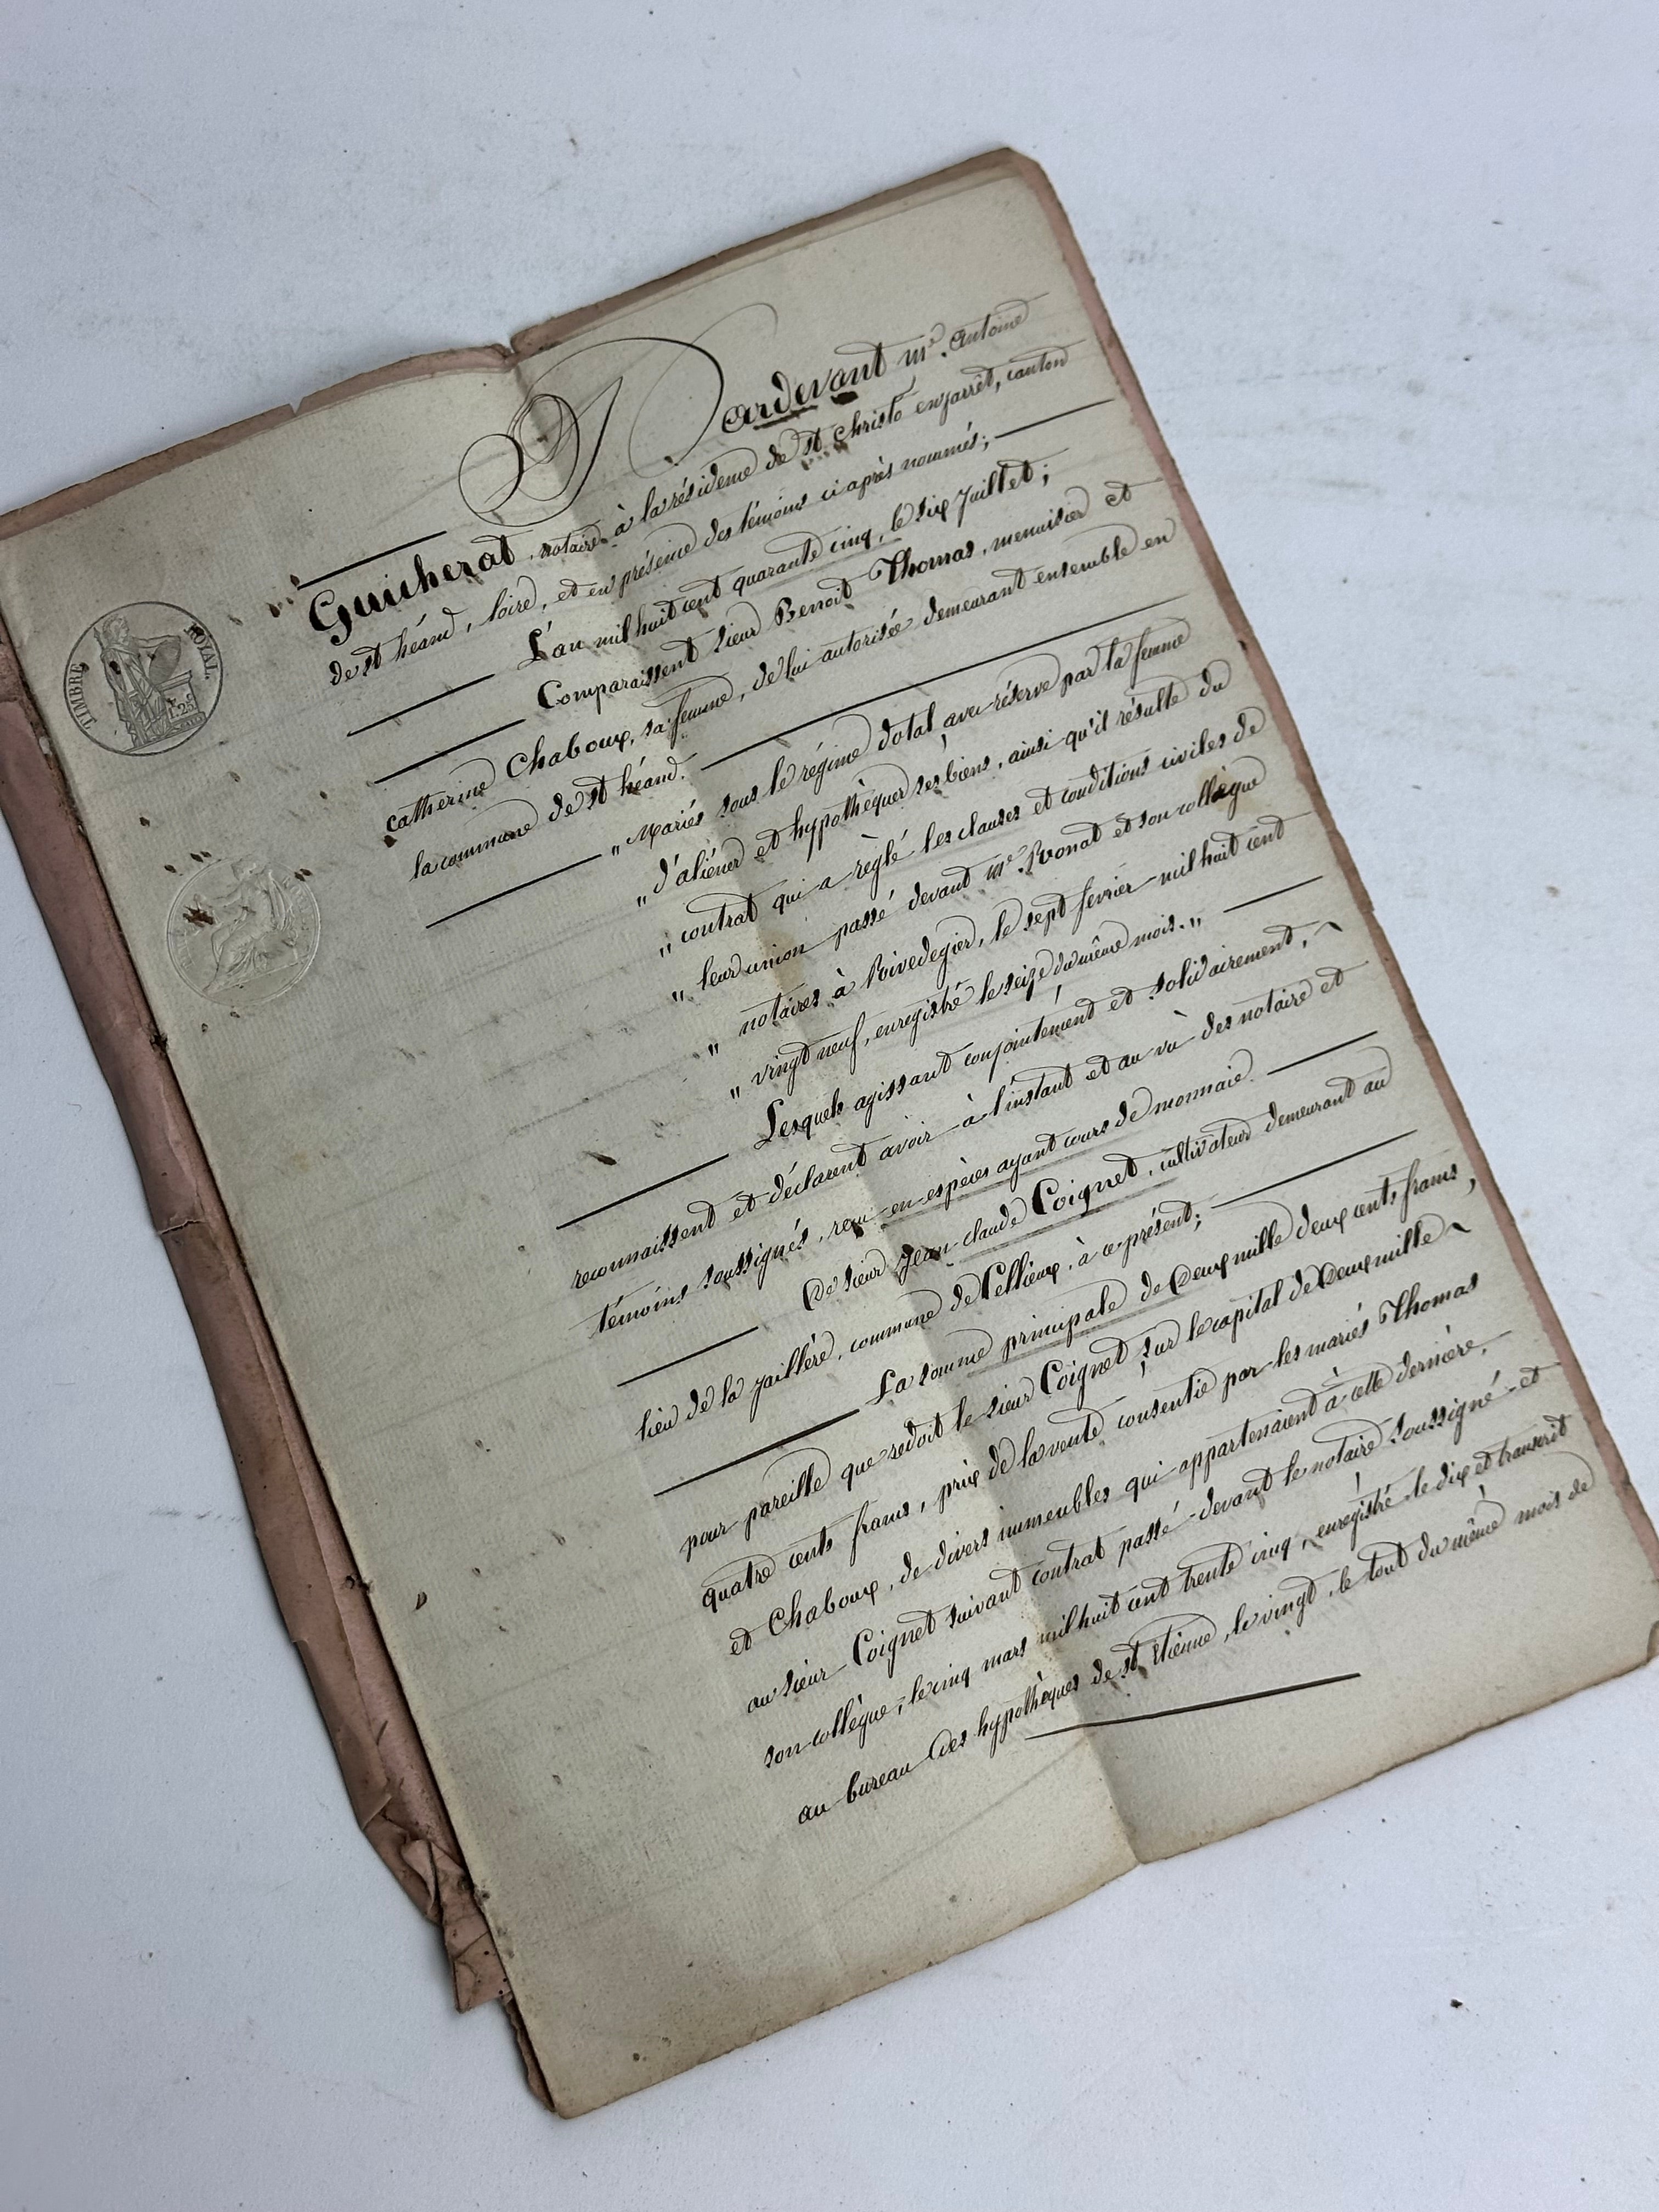 Pardevant Me. Antoine
Guicherat, notaire à la résidence de St. Christô en jarrêt, canton
de St héand, loire, et en présence des témoins ci après nommés;
L'an mil huit cent quarante cinq, le six Juillet;
Comparaissent sieur Benoit Thomas, menuisier et
catherine Chaboux, sa femme, de lui autorisée demeurant ensemble en
la commune de St héand.
„ Mariés sous le régime dotal, avec réserve par la femme
„ d'aliéner et hypothèquer ses biens, ainsi qu'il résulte du
„ contrat qui a règlé les clauses et conditions civiles de
„ leur union passé devant Me. et son collègue
„ notaires à Rivedegier, le sept février mil huit cent
„ vingt neuf, enregistré le seize du même mois. „
Lesquels agissant conjointement et solidairement,
reconnaissent et déclarent avoir à l'instant et au vu des notaire et
témoins soussignés, reçu en espèces ayant cours de monnaie.
De sieur Jean claude Coignet, cultivateur demeurant au
lieu de la Jaillère, commune de Cellieux, à ce présent;
La somme principale de Deux mille deux cents francs,
pour pareille que redoit le sieur Coignet, sur le capital de Deux mille
quatre cents francs, prix de la vente consentie par les mariés Thomas
et Chaboux, de divers immeubles qui appartenaient à cette dernière,
au sieur Coignet suivant contrat passé devant le notaire soussigné et
son collègue, le cinq mars mil huit cent trente cinq, enregistré le dix et transcrit
au bureau des hypothèques de St. Etienne, le vingt, le tout du même mois de
TIMBRE ROYAL
1 F. 25